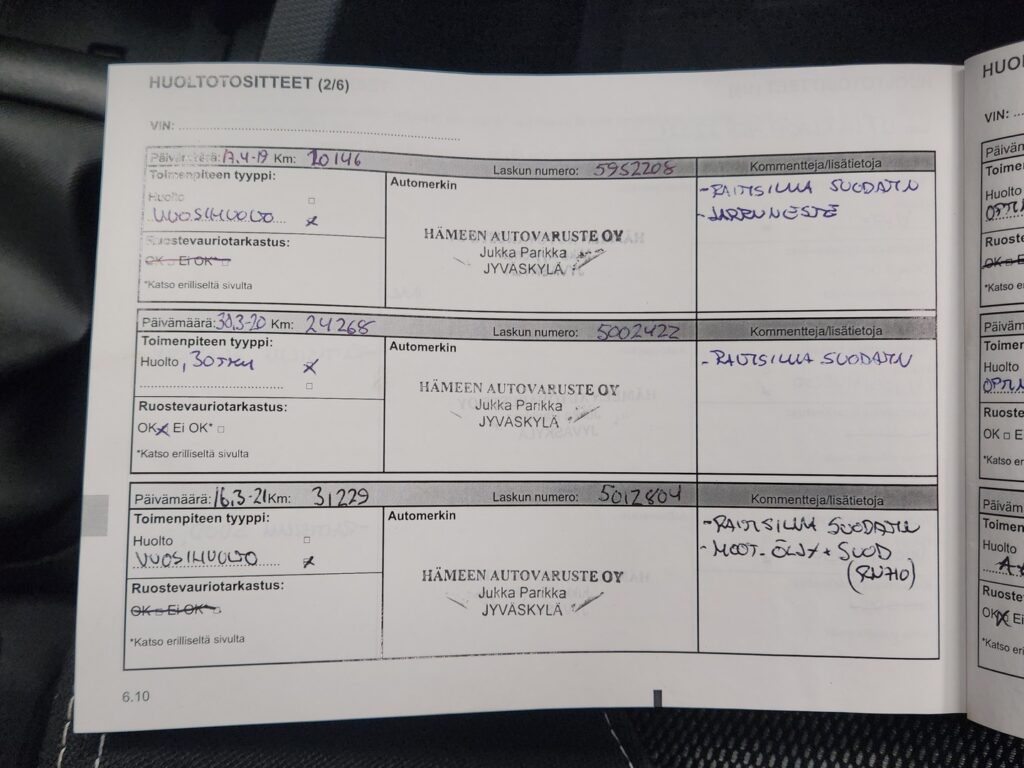 HUOLTOTOSITTEET (2/6)
VIN:
Päivämäärä: 17.4-19 Km: 20146 Laskun numero: 5952208 Kommentteja/lisätietoja
Toimenpiteen tyyppi:
Huolto
VUOSIHUOLTO x
Ruostevauriotarkastus:
OK Ei OK*
*Katso erilliseltä sivulta
Automerkin
HÄMEEN AUTOVARUSTE OY
Jukka Parikka
JYVÄSKYLÄ
-RAITISILMA SUODATIN
-JARRUNESTE
Päivämäärä: 30.3-20 Km: 24268 Laskun numero: 5002422 Kommentteja/lisätietoja
Toimenpiteen tyyppi:
Huolto, 30 TKM x
Ruostevauriotarkastus:
OK x Ei OK*
*Katso erilliseltä sivulta
Automerkin
HÄMEEN AUTOVARUSTE OY
Jukka Parikka
JYVÄSKYLÄ
-RAITISILMA SUODATIN
Päivämäärä: 16.3-21 Km: 31229 Laskun numero: 5012804 Kommentteja/lisätietoja
Toimenpiteen tyyppi:
Huolto
VUOSIHUOLTO x
Ruostevauriotarkastus:
OK Ei OK*
*Katso erilliseltä sivulta
Automerkin
HÄMEEN AUTOVARUSTE OY
Jukka Parikka
JYVÄSKYLÄ
-RAITISILMA SUODATIN
-MOOT-ÖLJY + SUOD
(RN710)
6.10
VIN:
Huolto
Huolto
OK E
*Katso eri
Huolto
OK x Ei
*Katso eri